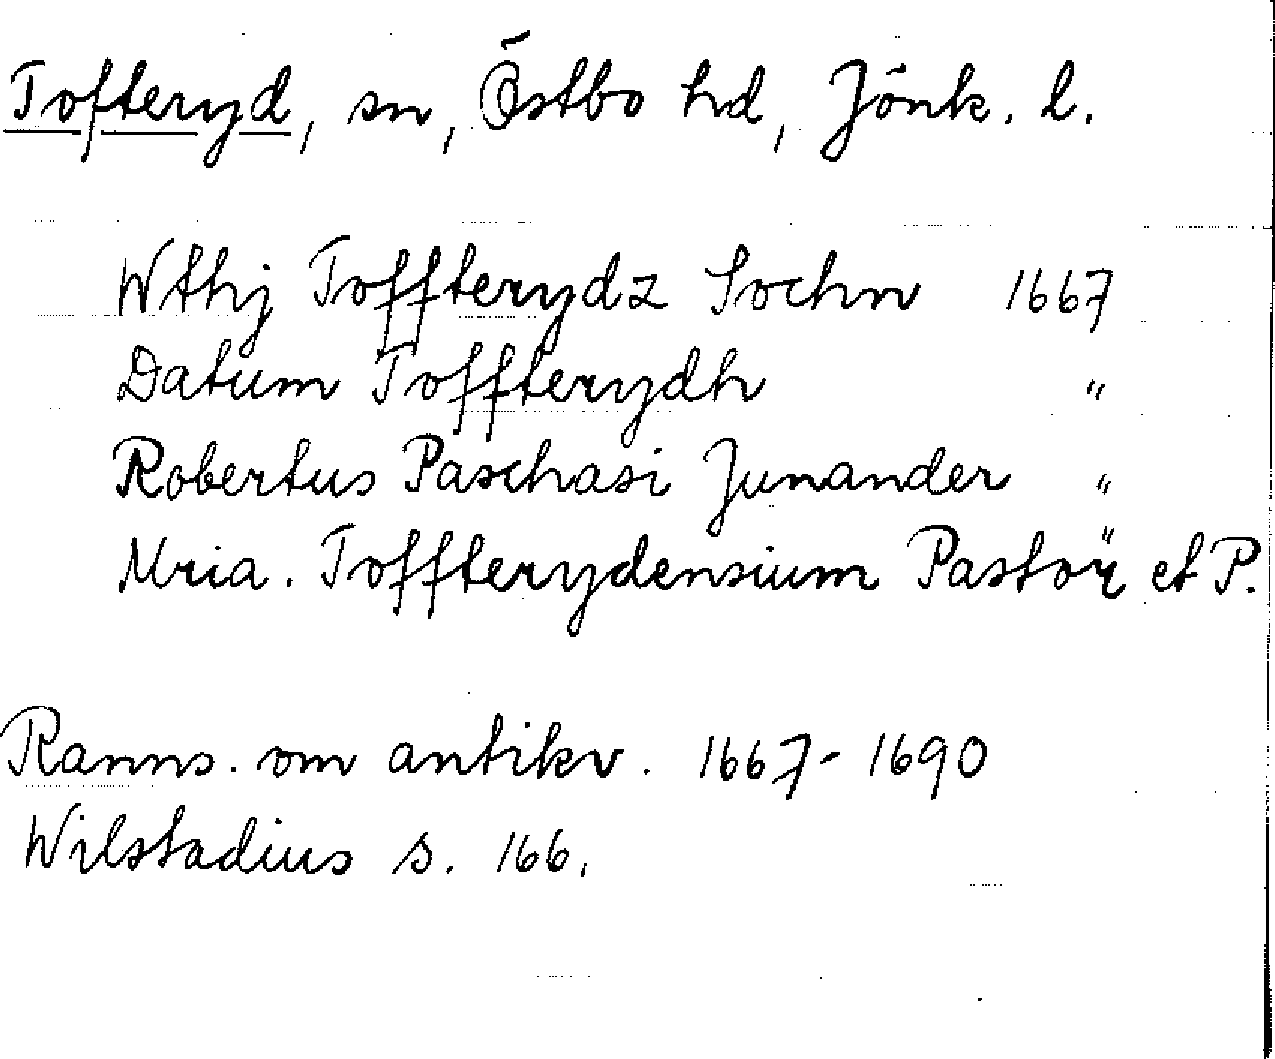 Tofteryd, sn, Östbo hd, Jönk. l.
Wthj Toffterydz Sochn 1667
Datum Toffterydh "
Robertus Paschasi Junander "
Mria. Toffterydensium Pastor et P. "
Ranns. om antikv. 1667-1690
Wilstadius s. 166.